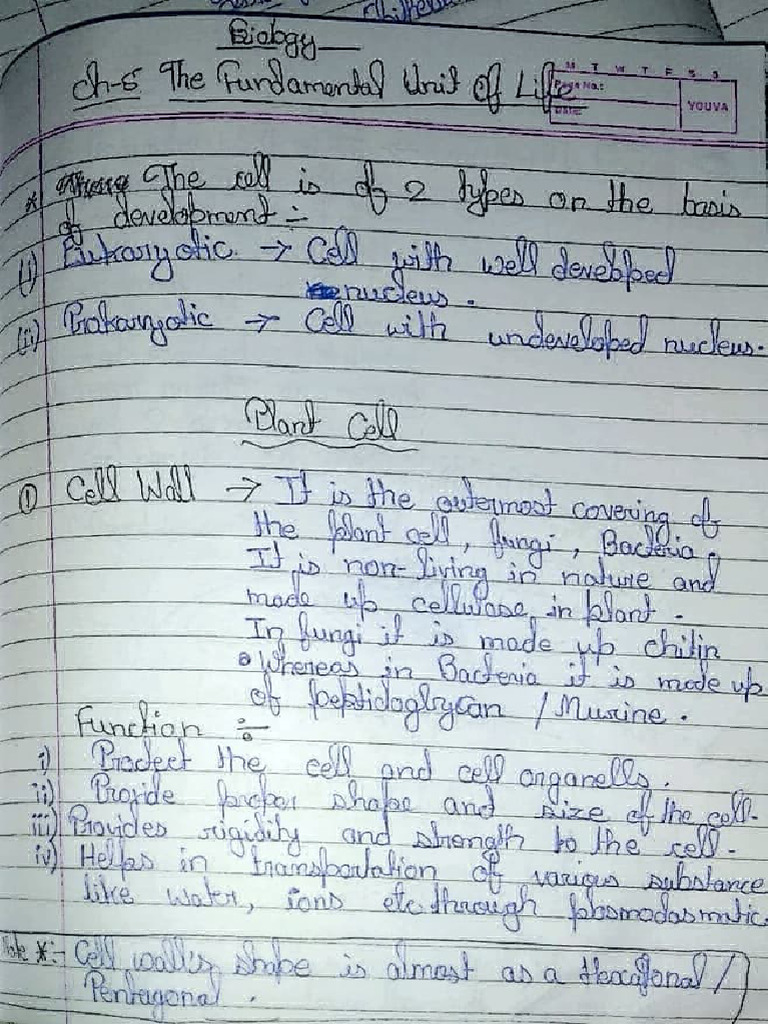 Biology
Ch-5 The Fundamental Unit Of Life
M T W T F S S
Page No.:
Date:
YOUVA
* The cell is of 2 types on the basis
of development :-
(i) Eukaryotic → Cell with well developed
nucleus.
(ii) Prokaryotic → Cell with undeveloped nucleus.
Plant Cell
① Cell Wall → It is the outermost covering of
the plant cell, fungi, Bacteria.
It is non-living in nature and
made up cellulose in plant.
In fungi it is made up chitin
• Whereas in Bacteria it is made up
of peptidoglycan / Murine.
Function :-
i) Protect the cell and cell organells.
ii) Provide proper shape and size of the cell.
iii) Provides rigidity and strength to the cell.
iv) Helps in transportation of various substance
like water, ions etc through plasmodasmatic.
Note *:- Cell walls shape is almost as a Hexagonal /
Pentagonal.